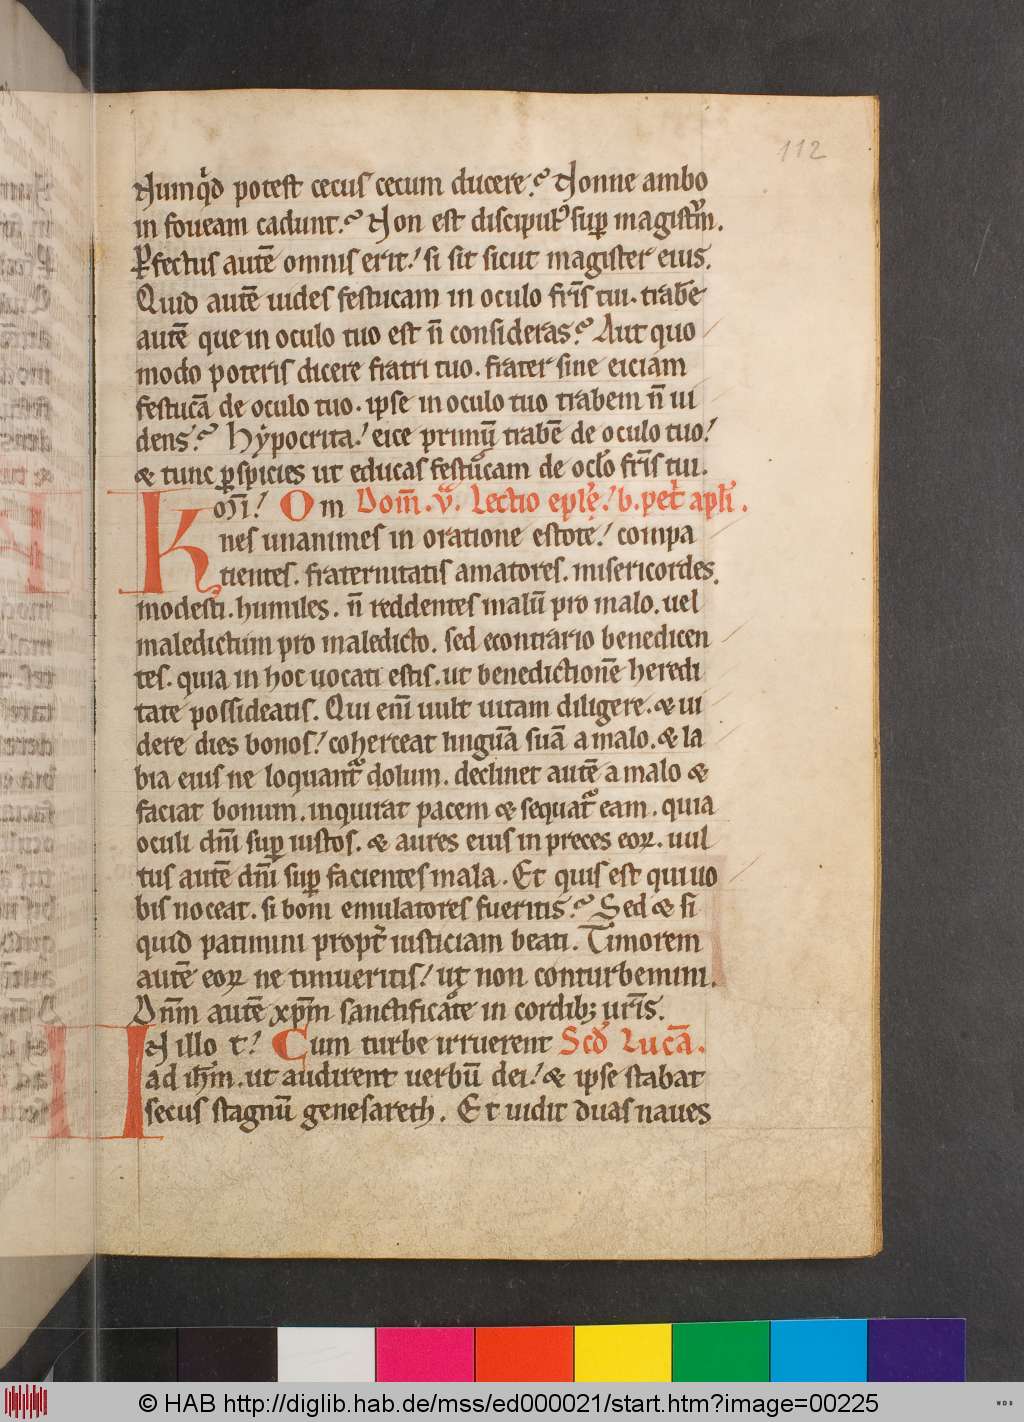 112
Numqͥd potest cecus cecum ducere? Nonne ambo
in foueam cadunt? Non est discipulꝰ suꝑ magistrͫ.
Ꝑfectus autē omnis erit! si sit sicut magister eius.
Quid autē uides festucam in oculo fr̄is tui. trabē
autē que in oculo tuo est n̄ consideras? Aut quo
modo poteris dicere fratri tuo. frater sine eiciam
festucā de oculo tuo. ipse in oculo tuo trabem n̄ ui
dens? Hẏpocrita! eice primū trabē de oculo tuo!
& tunc ꝑspicies ut educas festucam de oclo fr̄is tui.
Kom̄! Om Dom̄. v. Lectio epłę! b. petͥ apłi.
nes unanimes in oratione estote! compa
tientes. fraternitatis amatores. misericordes.
modesti. humiles. n̄ reddentes malū pro malo. uel
maledictum pro maledicto. sed econtrario benedicen
tes. quia in hoc uocati estis. ut benedictionē heredi
tate possideatis. Qui eni̅ uult uitam diligere. & ui
dere dies bonos! coherceat linguā suā a malo. & la
bia eius ne loquantᷣ dolum. declinet autē a malo &
faciat bonum. inquirat pacem & sequatᷣ eam. quia
oculi dn̄i suꝑ iustos. & aures eius in preces eoꝝ. uul
tus autē dn̄i suꝑ facientes mala. Et quis est qui uo
bis noceat. si boni emulatores fueritis? Sed & si
quid patimini propt̄ iusticiam beati. Timorem
autē eoꝝ ne timueritis! ut non conturbemini.
Dn̄m autē xp̄m sanctificate in cordibꝫ ur̄is.
IN illo t! Cum turbe irruerent Scd̄ Lucā.
ad ih̄m. ut audirent uerbū dei! & ipse stabat
secus stagnū genesareth. Et uidit duas naues
© HAB http://diglib.hab.de/mss/ed000021/start.htm?image=00225